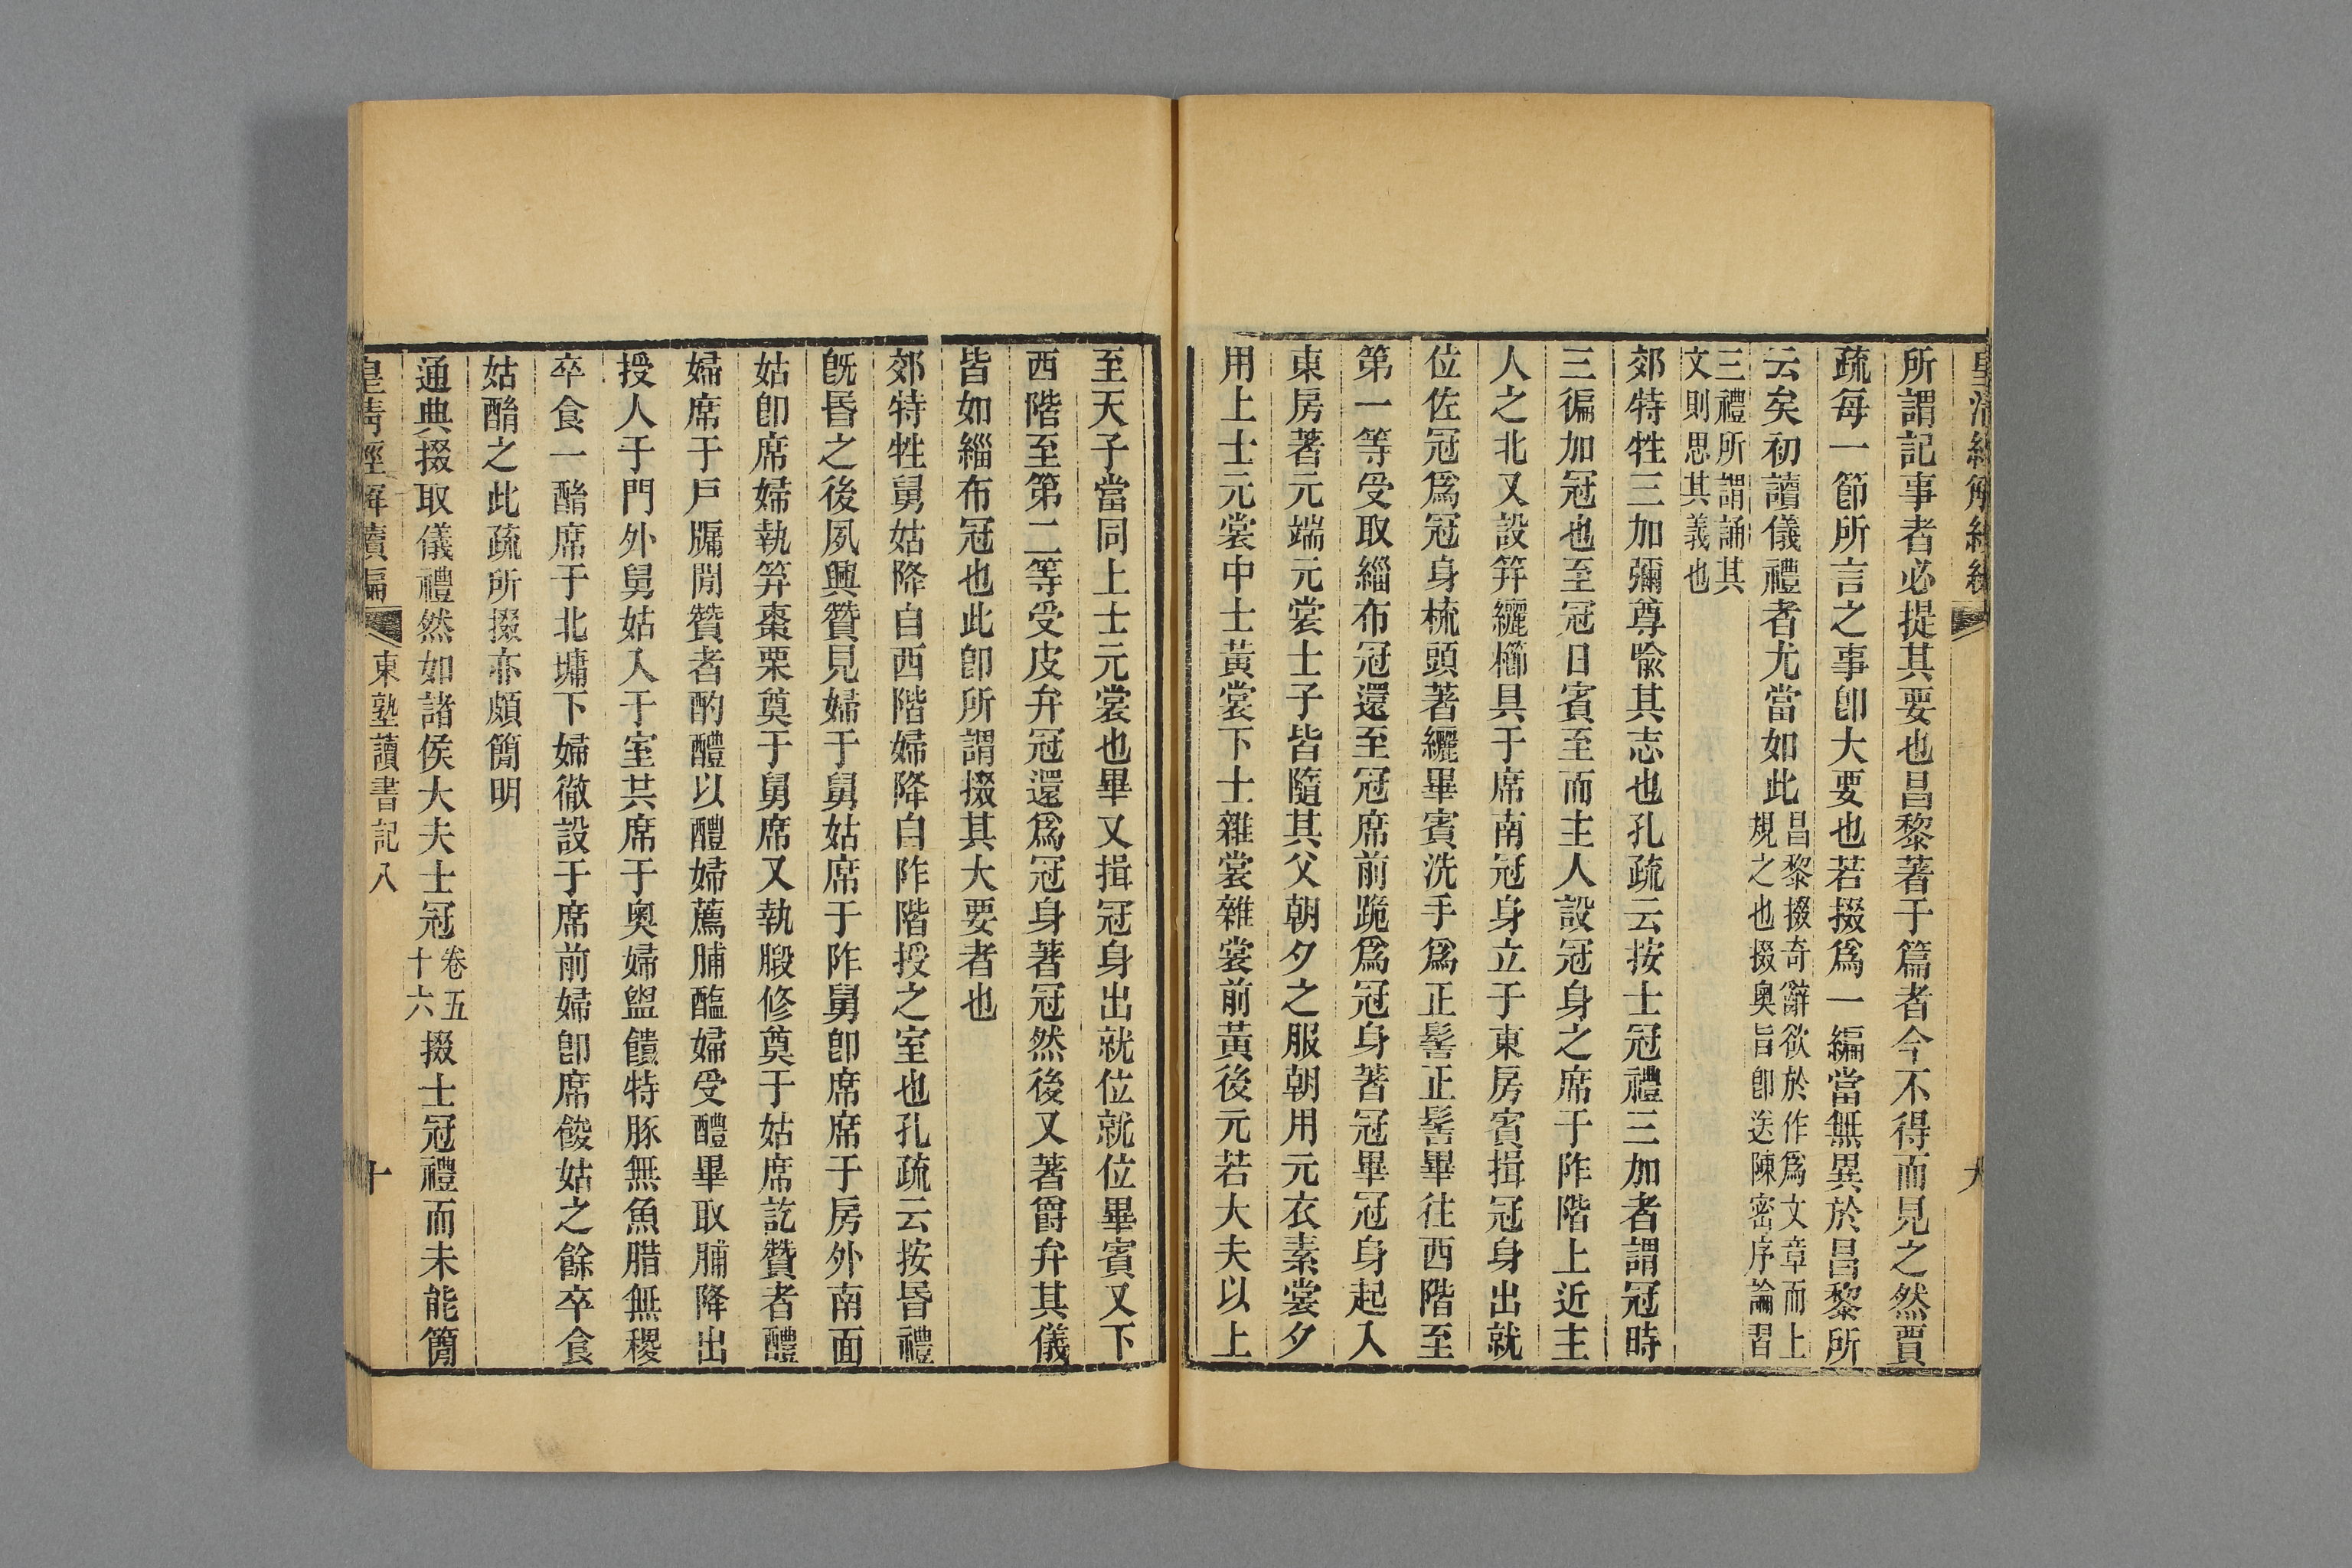 皇清經解續編
九
所謂記事者必提其要也昌黎著于篇者今不得而見之然賈
疏每一節所言之事卽大要也若掇爲一編當無異於昌黎所
云矣初讀儀禮者尤當如此昌黎掇奇辭欲於作爲文章而上
規之也掇奧旨卽送陳密序論習
三禮所謂誦其
文則思其義也
郊特牲三加彌尊喩其志也孔疏云按士冠禮三加者謂冠時
三徧加冠也至冠日賓至而主人設冠身之席于阼階上近主
人之北又設笄纚櫛具于席南冠身立于東房賓揖冠身出就
位佐冠爲冠身梳頭著纚畢賓洗手爲正髻正髻畢往西階至
第一等受取緇布冠還至冠席前跪爲冠身著冠畢冠身起入
東房著元端元裳士子皆隨其父朝夕之服朝用元衣素裳夕
用上士元裳中士黃裳下士雜裳雜裳前黃後元若大夫以上
至天子當同上士元裳也畢又揖冠身出就位就位畢賓又下
西階至第二等受皮弁冠還爲冠身著冠然後又著爵弁其儀
皆如緇布冠也此卽所謂掇其大要者也
郊特牲舅姑降自西階婦降自阼階授之室也孔疏云按昏禮
旣昏之後夙興贊見婦于舅姑席于阼舅卽席席于房外南面
姑卽席婦執笄棗栗奠于舅席又執腶修奠于姑席訖贊者醴
婦席于戶牖閒贊者酌醴以醴婦薦脯醢婦受醴畢取脯降出
授人于門外舅姑入于室共席于奧婦盥饋特豚無魚腊無稷
卒食一酳席于北墉下婦徹設于席前婦卽席餕姑之餘卒食
姑酳之此疏所掇亦頗簡明
通典掇取儀禮然如諸侯大夫士冠卷五
十六掇士冠禮而未能簡
皇清經解續編
東塾讀書記八
十